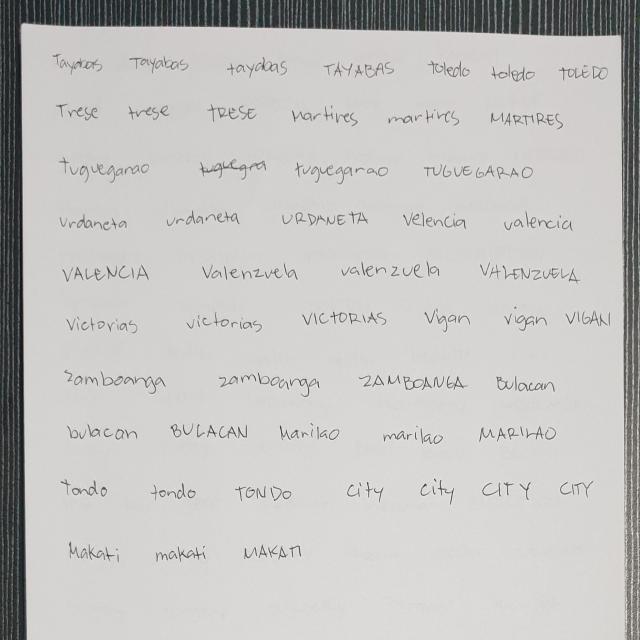 Tayabas Tayabas tayabas TAYABAS Toledo toledo TOLEDO
Trese trese TRESE Martires martires MARTIRES
Tuguegarao tuguegra tuguegarao TUGUEGARAO
Urdaneta urdaneta URDANETA Velencia valencia
VALENCIA Valenzuela valenzuela VALENZUELA
Victorias victorias VICTORIAS Vigan vigan VIGAN
Zamboanga zamboanga ZAMBOANGA Bulacan
bulacan BULACAN Marilao marilao MARILAO
Tondo tondo TONDO City city CITY CITY
Makati makati MAKATI